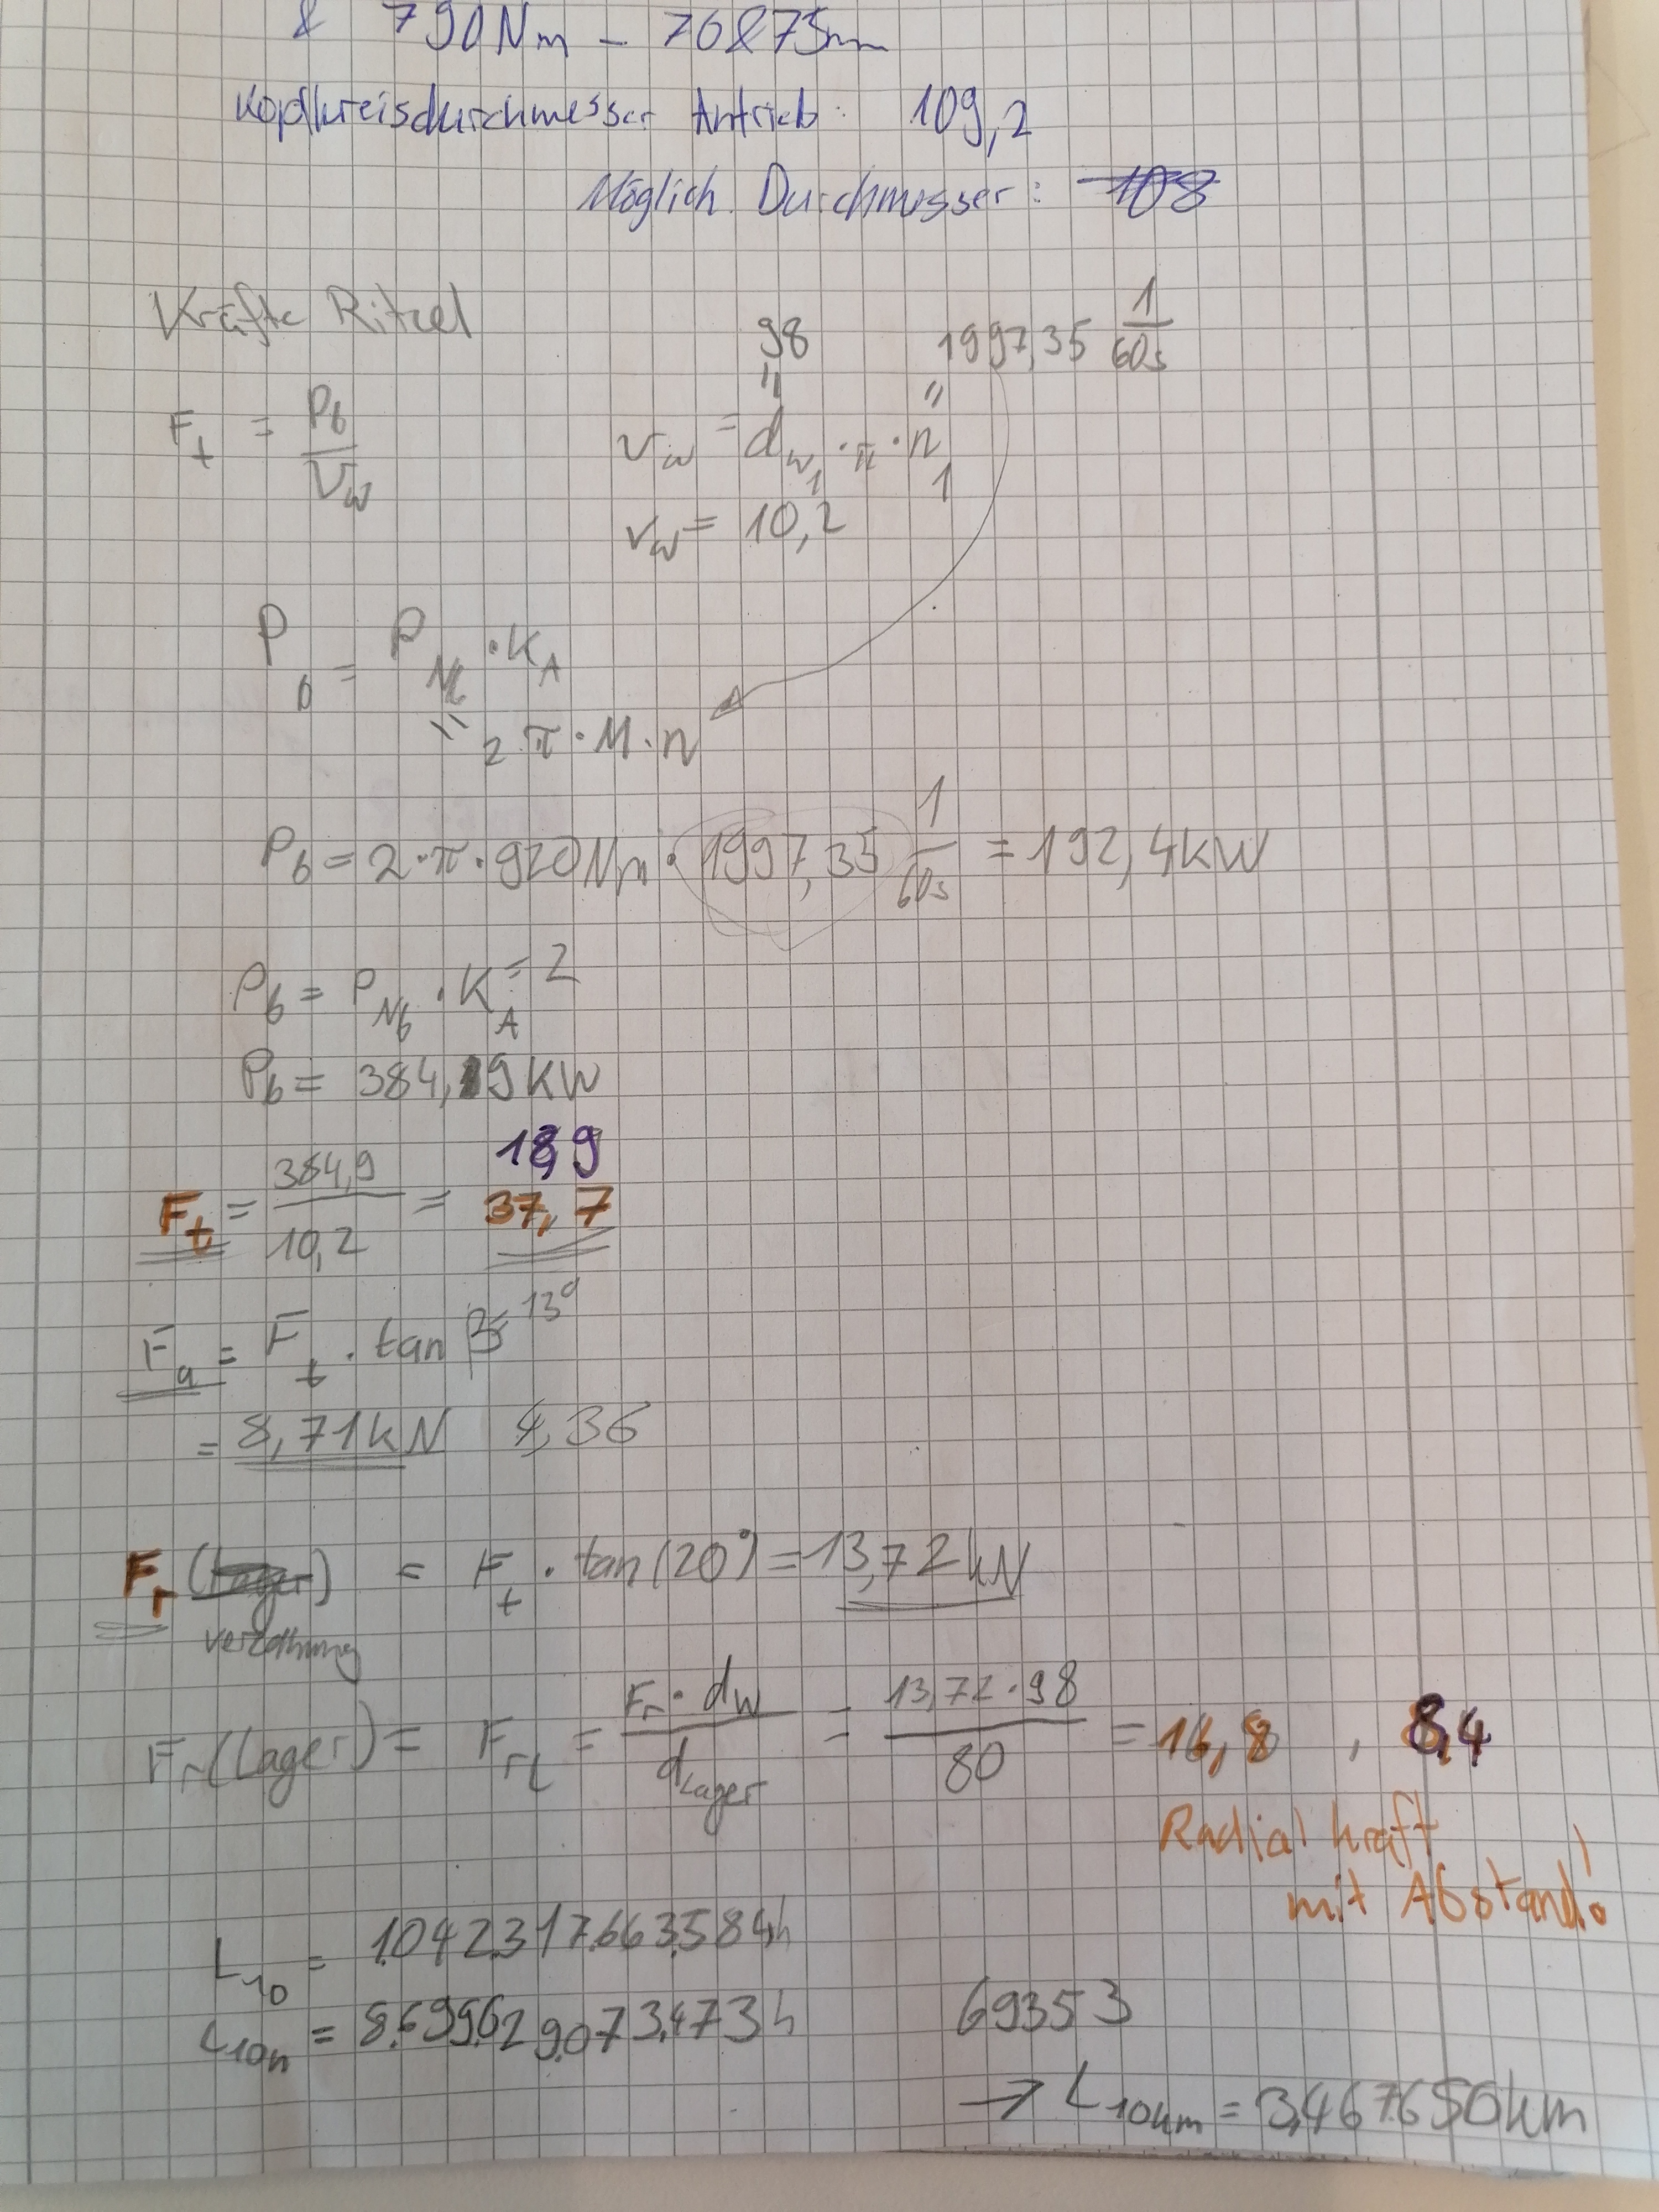 & 790Nm - 70&75mm
Kopfkreisdurchmesser Antrieb: 109,2
Möglich. Durchmesser: 108
Kräfte Ritzel
98 1997,35 1/60s
F_t = P_b/V_w
v_w = d_w1 · π · n_1
v_w = 10,2
P_b = P_Nb · K_A
= 2 π · M · n
P_b = 2 · π · 920Nm · 1997,35 1/60s = 192,4kW
P_b = P_Nb · K_A = 2
P_b = 384,19kW
18,9
F_t = 384,9/10,2 = 37,7
F_a = F_t · tan β = 13°
= 8,71kN 4,36
F_r (Lager) = F_t · tan(20°) = 13,72kN
verzahnung
F_r(Lager) = F_rL = F_r · d_w/d_Lager = 13,72 · 98/80 = 16,8 , 8,4
Radialkraft
mit Abstand!
L_10 = 1.042.317.663.584h
L_10h = 8.699.629.073.473h 69353
→ L_10km = 3,467650km